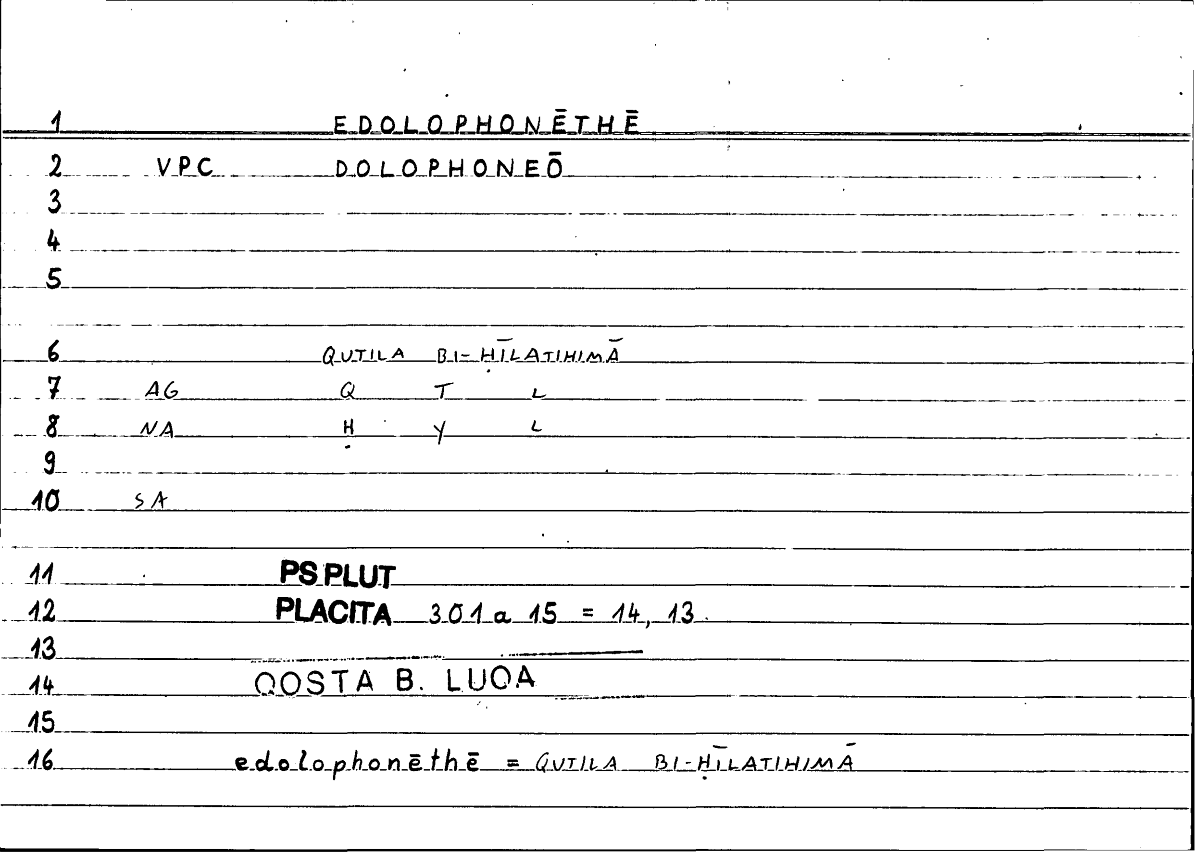 1 EDOLOPHONĒTHĒ
2 VPC DOLOPHONEŌ
3
4
5
6 QUTILA BI-ḤĪLATIHIMĀ
7 AG Q T L
8 NA Ḥ Y L
9
10 SA
11 PS PLUT
12 PLACITA 301 a 15 = 14, 13.
13
14 QOSTA B. LUQA
15
16 edolophonēthē = QUTILA BI-ḤĪLATIHIMĀ